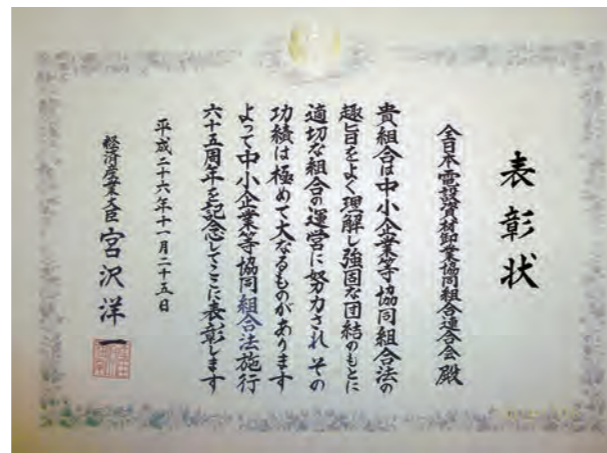 表彰状
全日本電設資材卸業協同組合連合会 殿
貴組合は中小企業等協同組合法の
趣旨をよく理解し強固な団結のもとに
適切な組合の運営に努力され その
功績は極めて大なるものがあります
よって中小企業等協同組合法施行
六十五周年を記念してここに表彰します
平成二十六年十一月二十五日
経済産業大臣 宮沢洋一